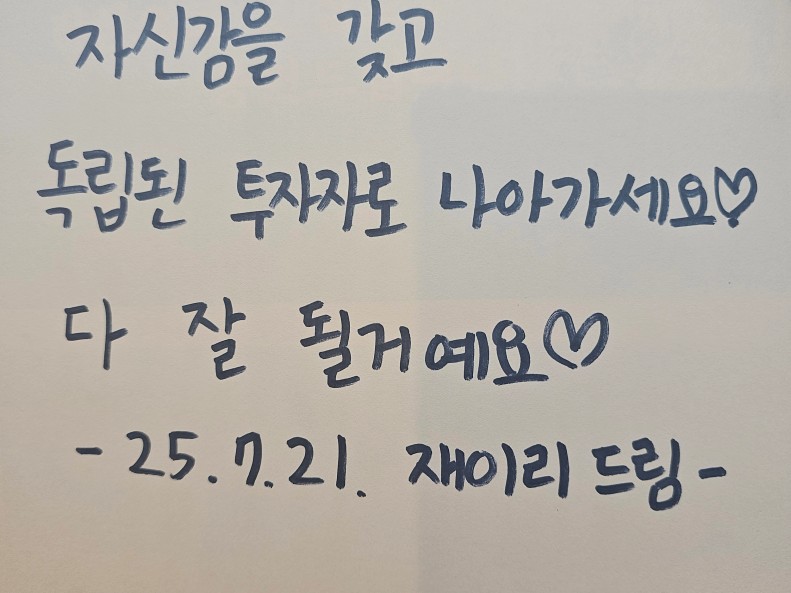 자신감을 갖고
독립된 투자자로 나아가세요♡
다 잘 될거예요♡
- 25.7.21. 재이리 드림 -